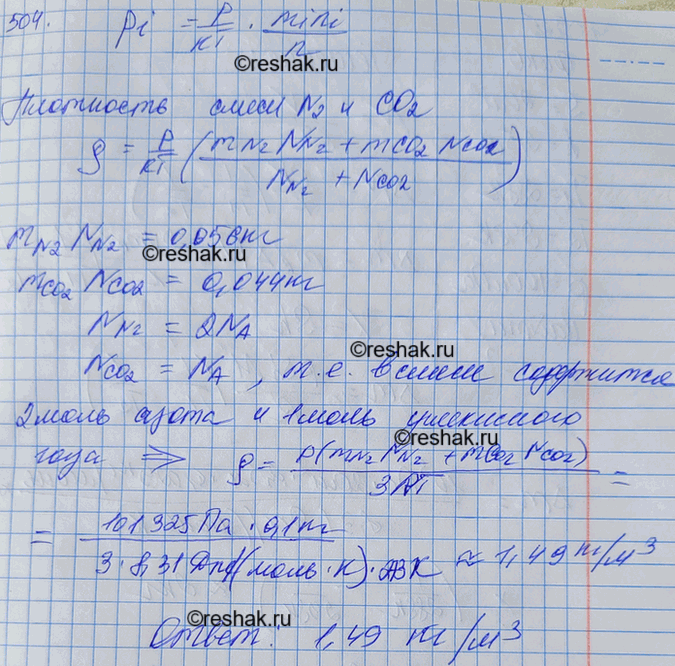 504. ρi = P/кT · mini/n
©reshak.ru
Плотность смеси N2 и CO2
ρ = P/кT (mN2 NN2 + mCO2 NCO2 / NN2 + NCO2)
mN2 NN2 = 0,056кг
©reshak.ru
mCO2 NCO2 = 0,044кг
NN2 = 2NA
©reshak.ru
NCO2 = NA , т.е. в смеси содержится
2 моль азота и 1 моль углекислого
года ⇒ ρ = P(mN2 NN2 + mCO2 NCO2) / 3RT =
©reshak.ru
= 101325Па · 0,1кг / 3·8,31 Дж/(моль·К)·273К ≈ 1,49 кг/м³
©reshak.ru
Ответ: 1,49 кг/м³